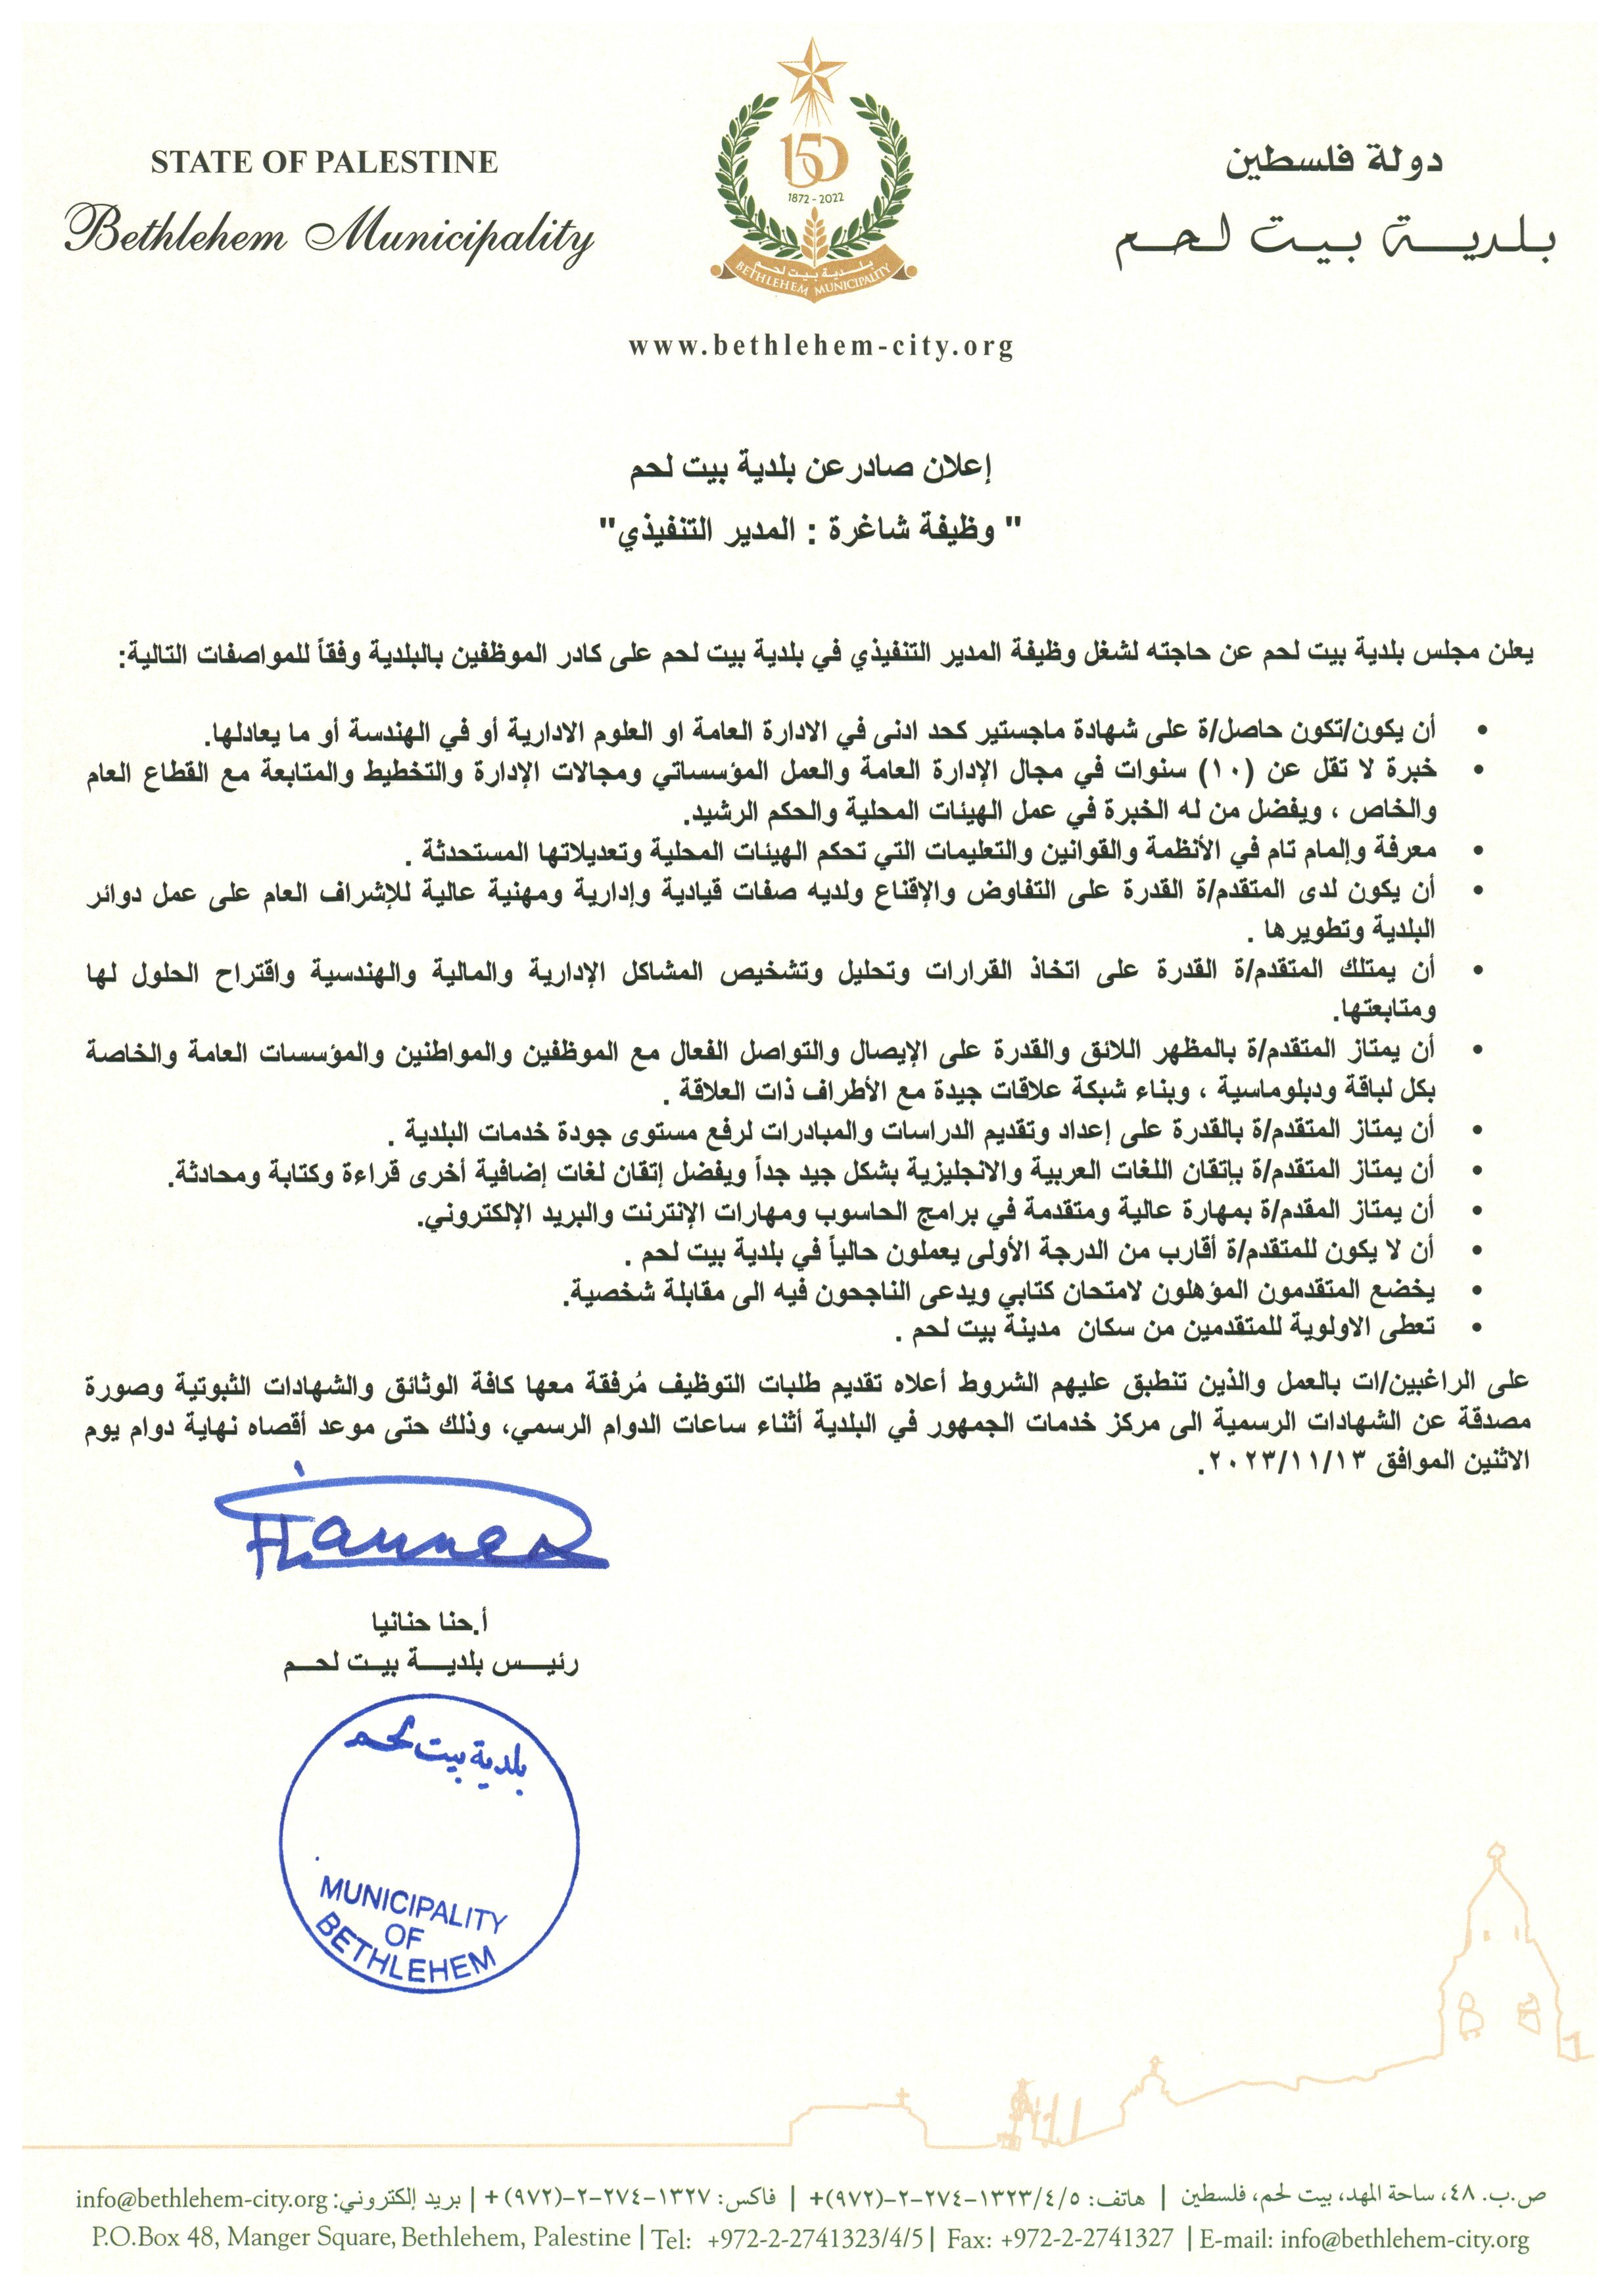 STATE OF PALESTINE
Bethlehem Municipality
150
1872 - 2022
بلدية بيت لحم
BETHLEHEM MUNICIPALITY
دولة فلسطين
بلديـــة بيـت لحـم
www.bethlehem-city.org
إعلان صادر عن بلدية بيت لحم
" وظيفة شاغرة : المدير التنفيذي"
يعلن مجلس بلدية بيت لحم عن حاجته لشغل وظيفة المدير التنفيذي في بلدية بيت لحم على كادر الموظفين بالبلدية وفقاً للمواصفات التالية:
• أن يكون/تكون حاصل/ة على شهادة ماجستير كحد ادنى في الادارة العامة او العلوم الادارية أو في الهندسة أو ما يعادلها.
• خبرة لا تقل عن (١٠) سنوات في مجال الإدارة العامة والعمل المؤسساتي ومجالات الإدارة والتخطيط والمتابعة مع القطاع العام
والخاص ، ويفضل من له الخبرة في عمل الهيئات المحلية والحكم الرشيد.
• معرفة وإلمام تام في الأنظمة والقوانين والتعليمات التي تحكم الهيئات المحلية وتعديلاتها المستحدثة .
• أن يكون لدى المتقدم/ة القدرة على التفاوض والإقناع ولديه صفات قيادية وإدارية ومهنية عالية للإشراف العام على عمل دوائر
البلدية وتطويرها .
• أن يمتلك المتقدم/ة القدرة على اتخاذ القرارات وتحليل وتشخيص المشاكل الإدارية والمالية والهندسية واقتراح الحلول لها
ومتابعتها.
• أن يمتاز المتقدم/ة بالمظهر اللائق والقدرة على الإيصال والتواصل الفعال مع الموظفين والمواطنين والمؤسسات العامة والخاصة
بكل لباقة ودبلوماسية ، وبناء شبكة علاقات جيدة مع الأطراف ذات العلاقة .
• أن يمتاز المتقدم/ة بالقدرة على إعداد وتقديم الدراسات والمبادرات لرفع مستوى جودة خدمات البلدية .
• أن يمتاز المتقدم/ة بإتقان اللغات العربية والانجليزية بشكل جيد جداً ويفضل إتقان لغات إضافية أخرى قراءة وكتابة ومحادثة.
• أن يمتاز المقدم/ة بمهارة عالية ومتقدمة في برامج الحاسوب ومهارات الإنترنت والبريد الإلكتروني.
• أن لا يكون للمتقدم/ة أقارب من الدرجة الأولى يعملون حالياً في بلدية بيت لحم .
• يخضع المتقدمون المؤهلون لامتحان كتابي ويدعى الناجحون فيه الى مقابلة شخصية.
• تعطى الاولوية للمتقدمين من سكان مدينة بيت لحم .
على الراغبين/ات بالعمل والذين تنطبق عليهم الشروط أعلاه تقديم طلبات التوظيف مُرفقة معها كافة الوثائق والشهادات الثبوتية وصورة
مصدقة عن الشهادات الرسمية الى مركز خدمات الجمهور في البلدية أثناء ساعات الدوام الرسمي، وذلك حتى موعد أقصاه نهاية دوام يوم
الاثنين الموافق ٢٠٢٣/١١/١٣.
أ.حنا حنانيا
رئيـــس بلديـــة بيـــت لحـــم
بلدية بيت لحم
MUNICIPALITY
OF
BETHLEHEM
ص.ب. ٤٨، ساحة المهد، بيت لحم، فلسطين | هاتف: ٥/٤/١٣٢٣-٢٧٤-٢-(٩٧٢)+ | فاكس: ١٣٢٧-٢٧٤-٢-(٩٧٢)+ | بريد إلكتروني: info@bethlehem-city.org
P.O.Box 48, Manger Square, Bethlehem, Palestine | Tel: +972-2-2741323/4/5 | Fax: +972-2-2741327 | E-mail: info@bethlehem-city.org